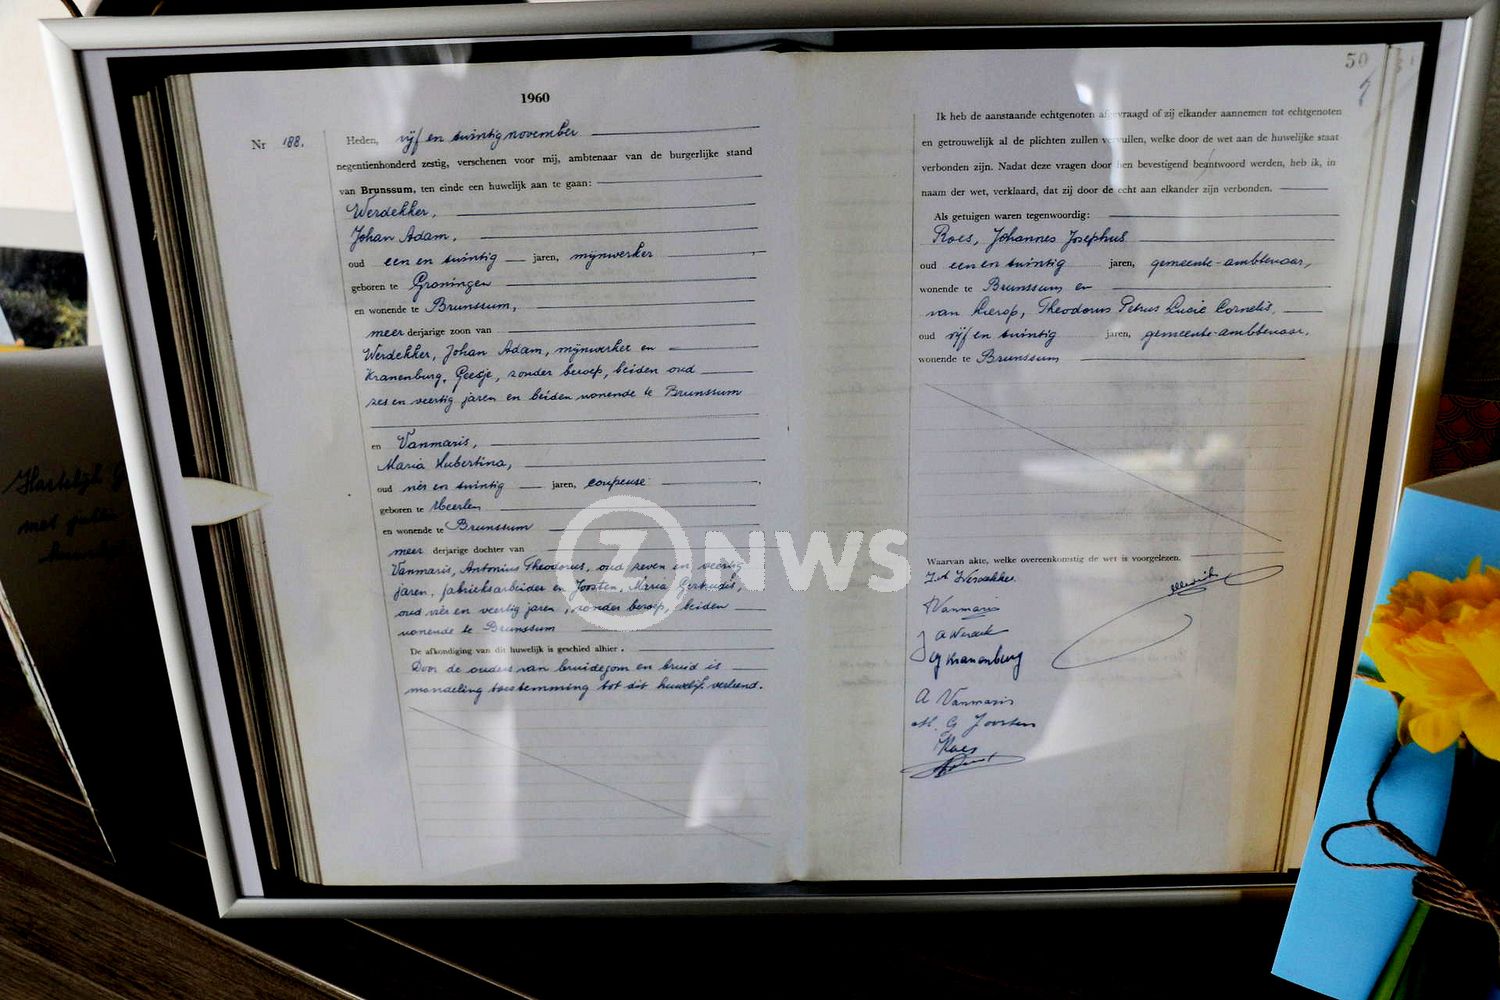 1960
Nr 188.
Heden, vijf en twintig november
negentienhonderd zestig, verschenen voor mij, ambtenaar van de burgerlijke stand
van Brunssum, ten einde een huwelijk aan te gaan:
Werdekker,
Johan Adam,
oud een en twintig jaren, mijnwerker
geboren te Groningen
en wonende te Brunssum,
meer derjarige zoon van
Werdekker, Johan Adam, mijnwerker en
Kranenburg, Geesje, zonder beroep, beiden oud
zes en veertig jaren en beiden wonende te Brunssum
en Vanmaris,
Maria Hubertina,
oud vier en twintig jaren, coupeuse
geboren te Heerlen
en wonende te Brunssum
meer derjarige dochter van
Vanmaris, Antonius Theodorus, oud zeven en veertig
jaren, fabrieksarbeider en Joosten, Maria Gertrudis,
oud vier en veertig jaren, zonder beroep, beiden
wonende te Brunssum
De afkondiging van dit huwelijk is geschied alhier.
Door de ouders van bruidegom en bruid is
mondeling toestemming tot dit huwelijk verleend.
50
Ik heb de aanstaande echtgenoten afgevraagd of zij elkander aannemen tot echtgenoten
en getrouwelijk al de plichten zullen vervullen, welke door de wet aan de huwelijke staat
verbonden zijn. Nadat deze vragen door hen bevestigend beantwoord werden, heb ik, in
naam der wet, verklaard, dat zij door de echt aan elkander zijn verbonden.
Als getuigen waren tegenwoordig:
Roes, Johannes Josephus
oud een en twintig jaren, gemeente-ambtenaar,
wonende te Brunssum en
van Lierop, Theodorus Petrus Lucie Cornelis,
oud vijf en twintig jaren, gemeente-ambtenaar,
wonende te Brunssum
Waarvan akte, welke overeenkomstig de wet is voorgelezen.
J A Werdekker
Vanmaris
J A Werdek
G Kranenburg
A Vanmaris
M. G Joosten
Roes
ZNWS
Hartelijk
met jullie